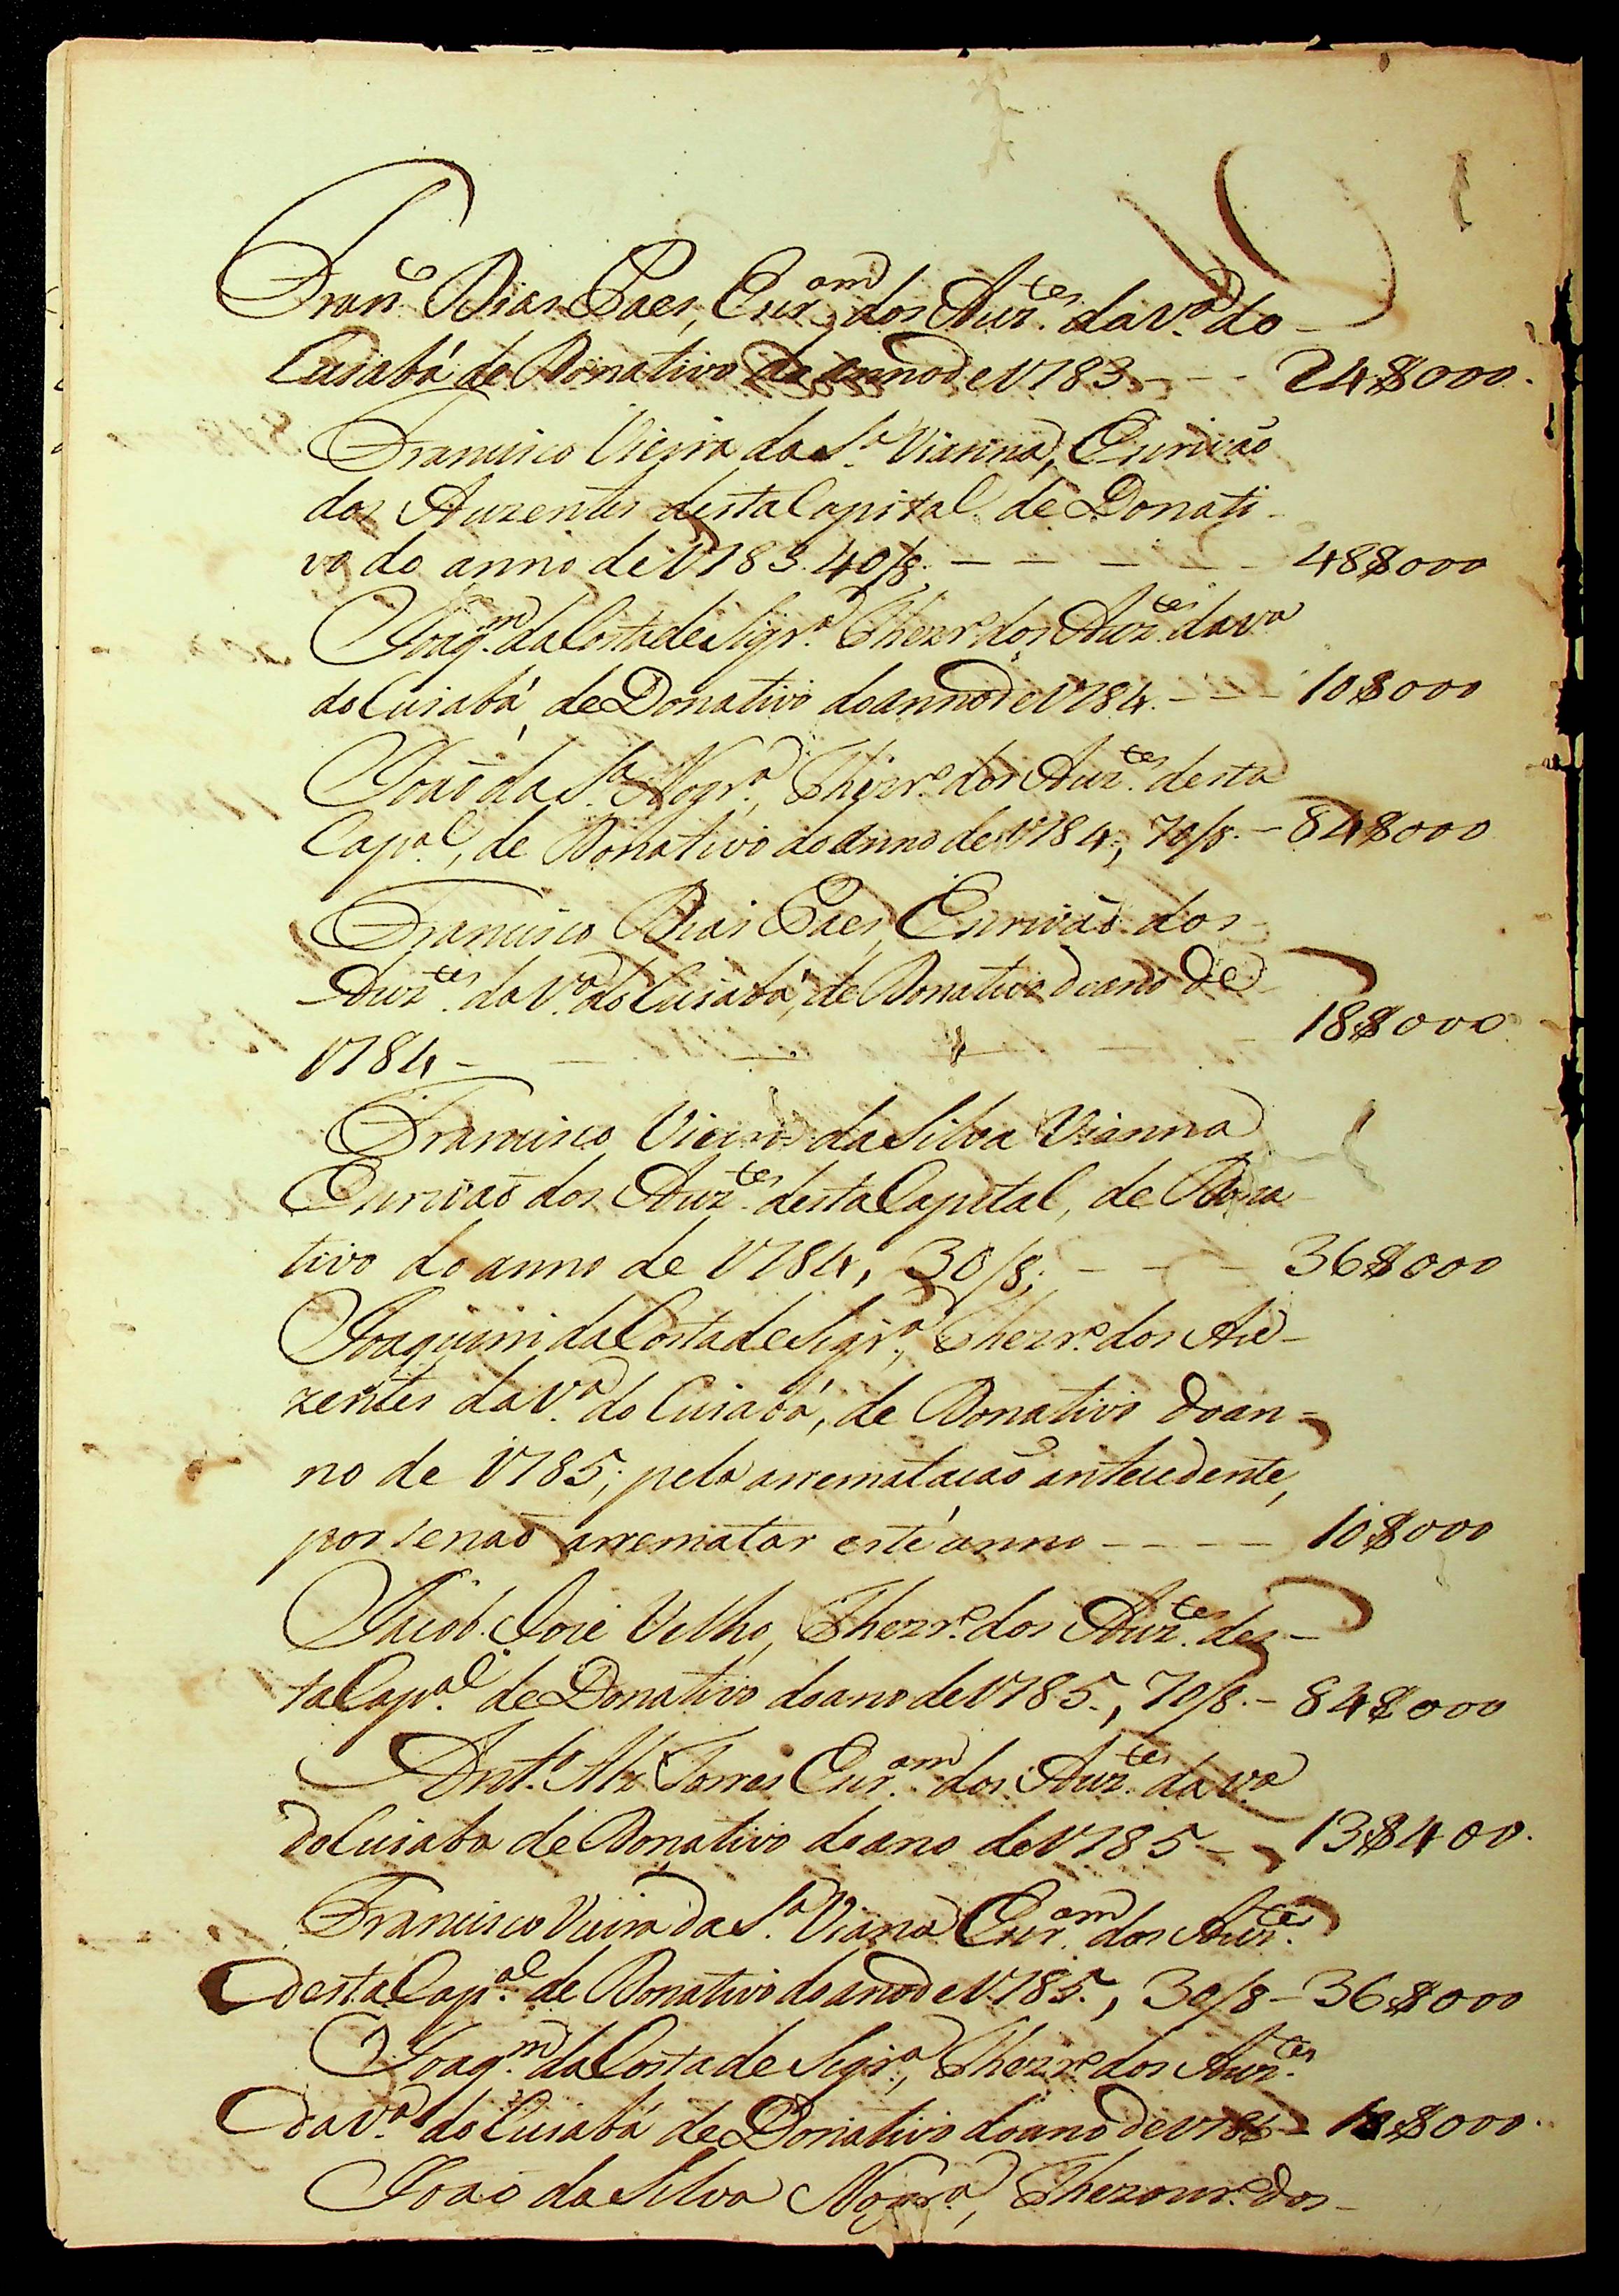 Fran.co Dias Paes, Escr.am dos Auz.tes da V.a do
Cuiabá de Donativo do anno de 1783. - - - 24$000.
Francisco Vieira da S.a Vianna, Escrivaõ
dos Auzentes desta Capital de Donati-
vo do anno de 1783. 40/8.as - - - - - 48$000
Joaq.m da Costa de Siqr.a Thezr.o dos Auz.tes da V.a
do Cuiabá, de Donativo do anno de 1784. - - - 10$000
Joaõ da S.a Nogr.a, Thezr.o dos Auz.tes desta
Cap.al, de Donativo do anno de 1784; 70/8. - 84$000
Francisco Dias Paes, Escrivaõ dos
Auz.tes da V.a do Cuiabá, de Donativo do ano de
1784 - - - - - - 18$000
Francisco Vieira da Silva Vianna
Escrivaõ dos Auz.tes desta Capital, de Dona
tivo do anno de 1784, 30/8; - - - 36$000
Joaquim da Costa de Siqr.a, Thezr.o dos Au-
zentes da V.a do Cuiabá, de Donativo do an-
no de 1785; pela arremataçaõ antecedente,
por senaõ arrematar este anno - - - - 10$000
Jacob José Velho, Thezr.o dos Auz.tes des-
ta Cap.al de Donativo do ano de 1785., 70/8. - 84$000
Ant.o Alz Torres Escr.am dos Auz.tes da V.a
do Cuiaba de Donativo do ano de 1785 - - 13$400.
Francisco Vieira da S.a Viana Escr.am dos Auz.tes
desta Cap.al de Donativo do ano de 1785., 30/8 - 36$000
Joaq.m da Costa de Siqr.a, Thezr.o dos Auz.tes
da V.a do Cuiabá de Donativo do ano de 1786 - 10$000.
Joaõ da Silva Nogr.a, Thezour.o dos-